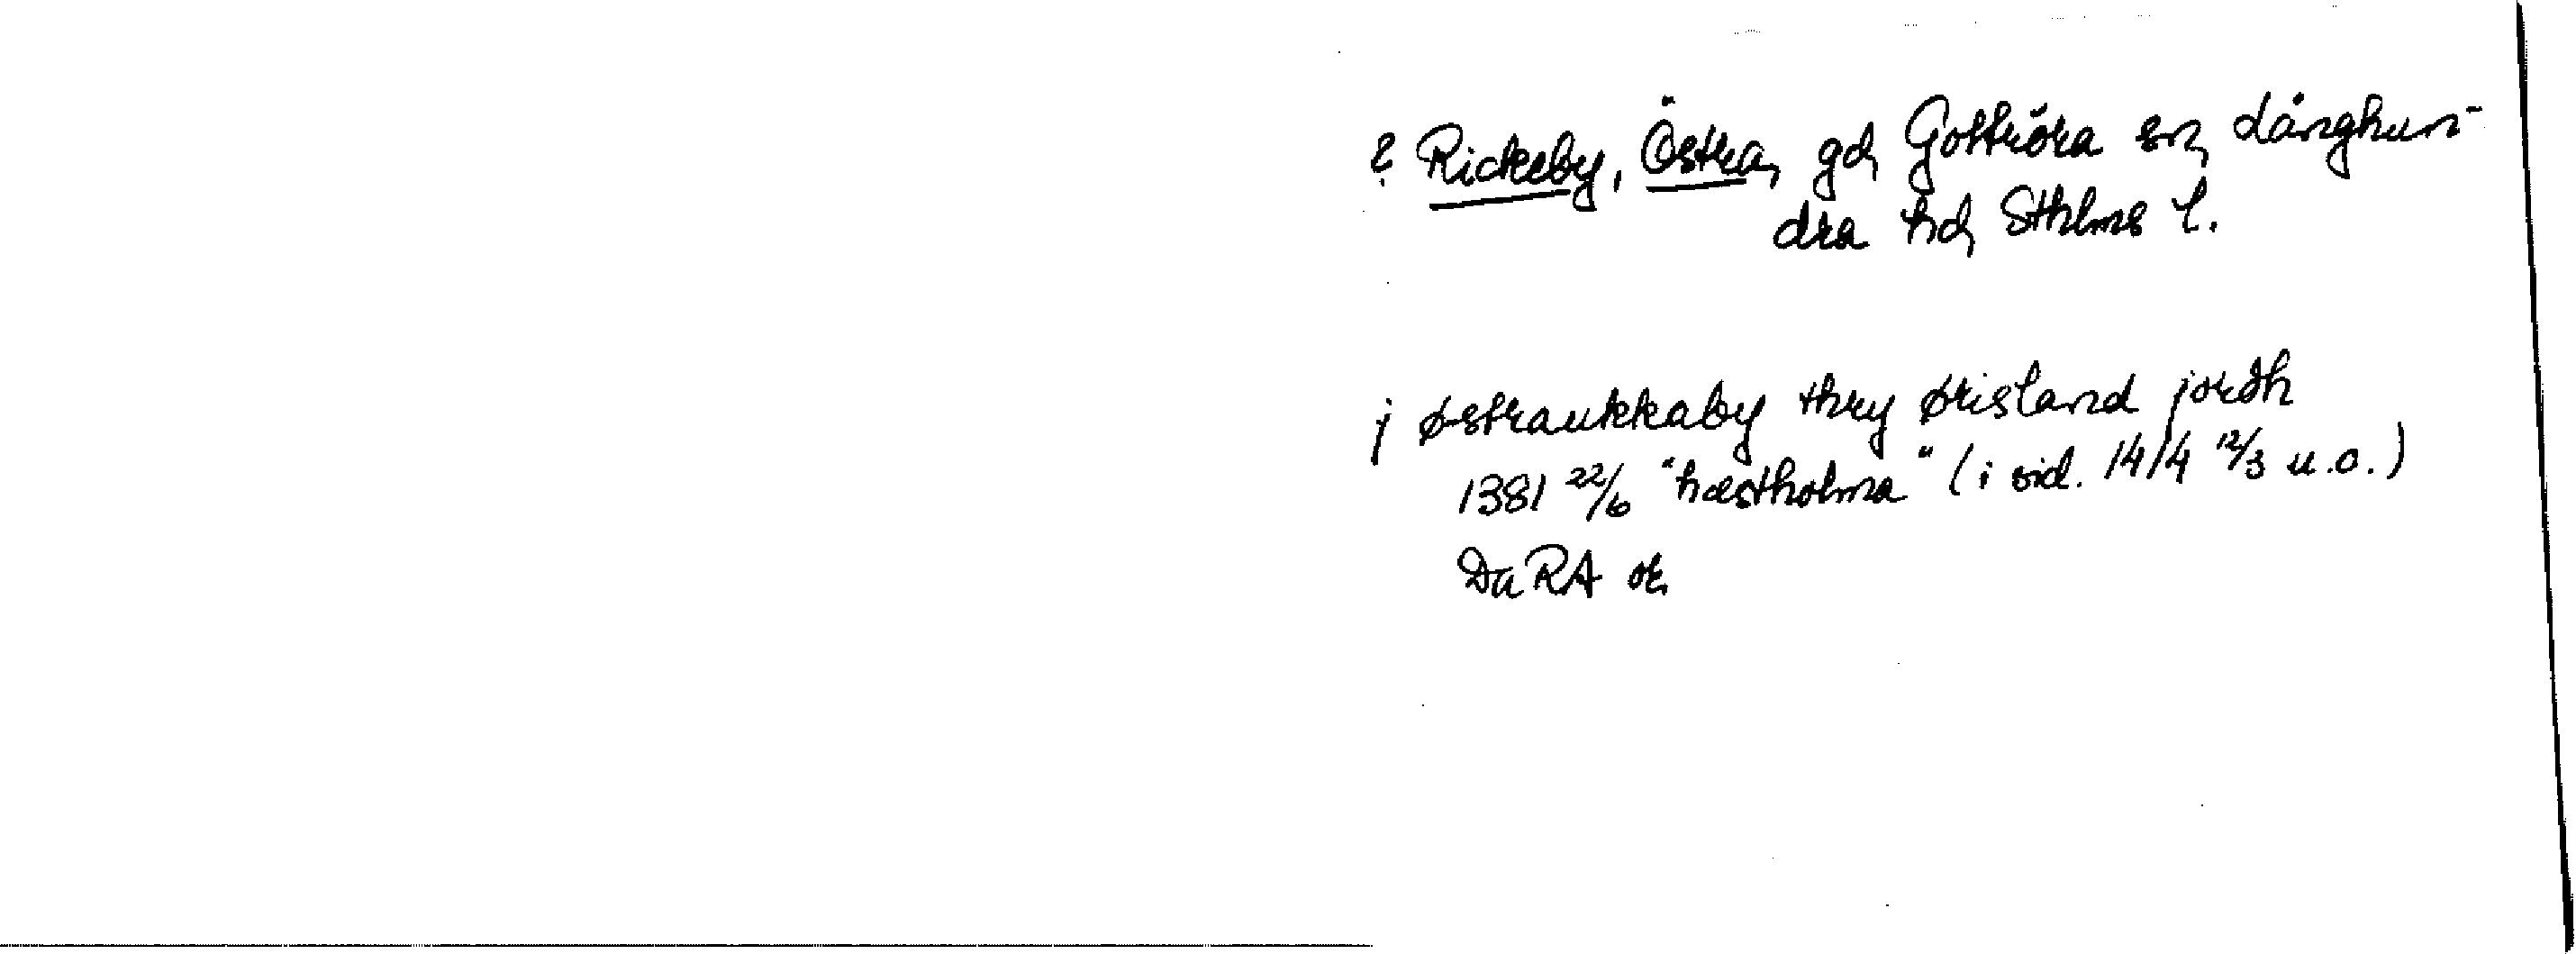 ? Rickeby, Östra, gd, Gottröra sn, Långhun-
dra hd, Sthlms l.
j østraukkaby thry ørisland jordh
1381 22/6 "hæstholma" (i vid. 14/4 12/3 u.o.)
Da RA or.